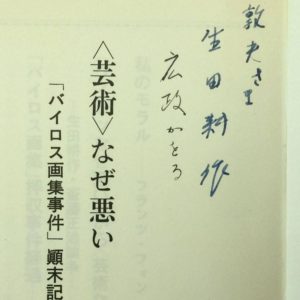 敦夫さま
生田耕作
広政かをる
〈芸術〉なぜ悪い
「バイロス画集事件」顚末記
私のモラル